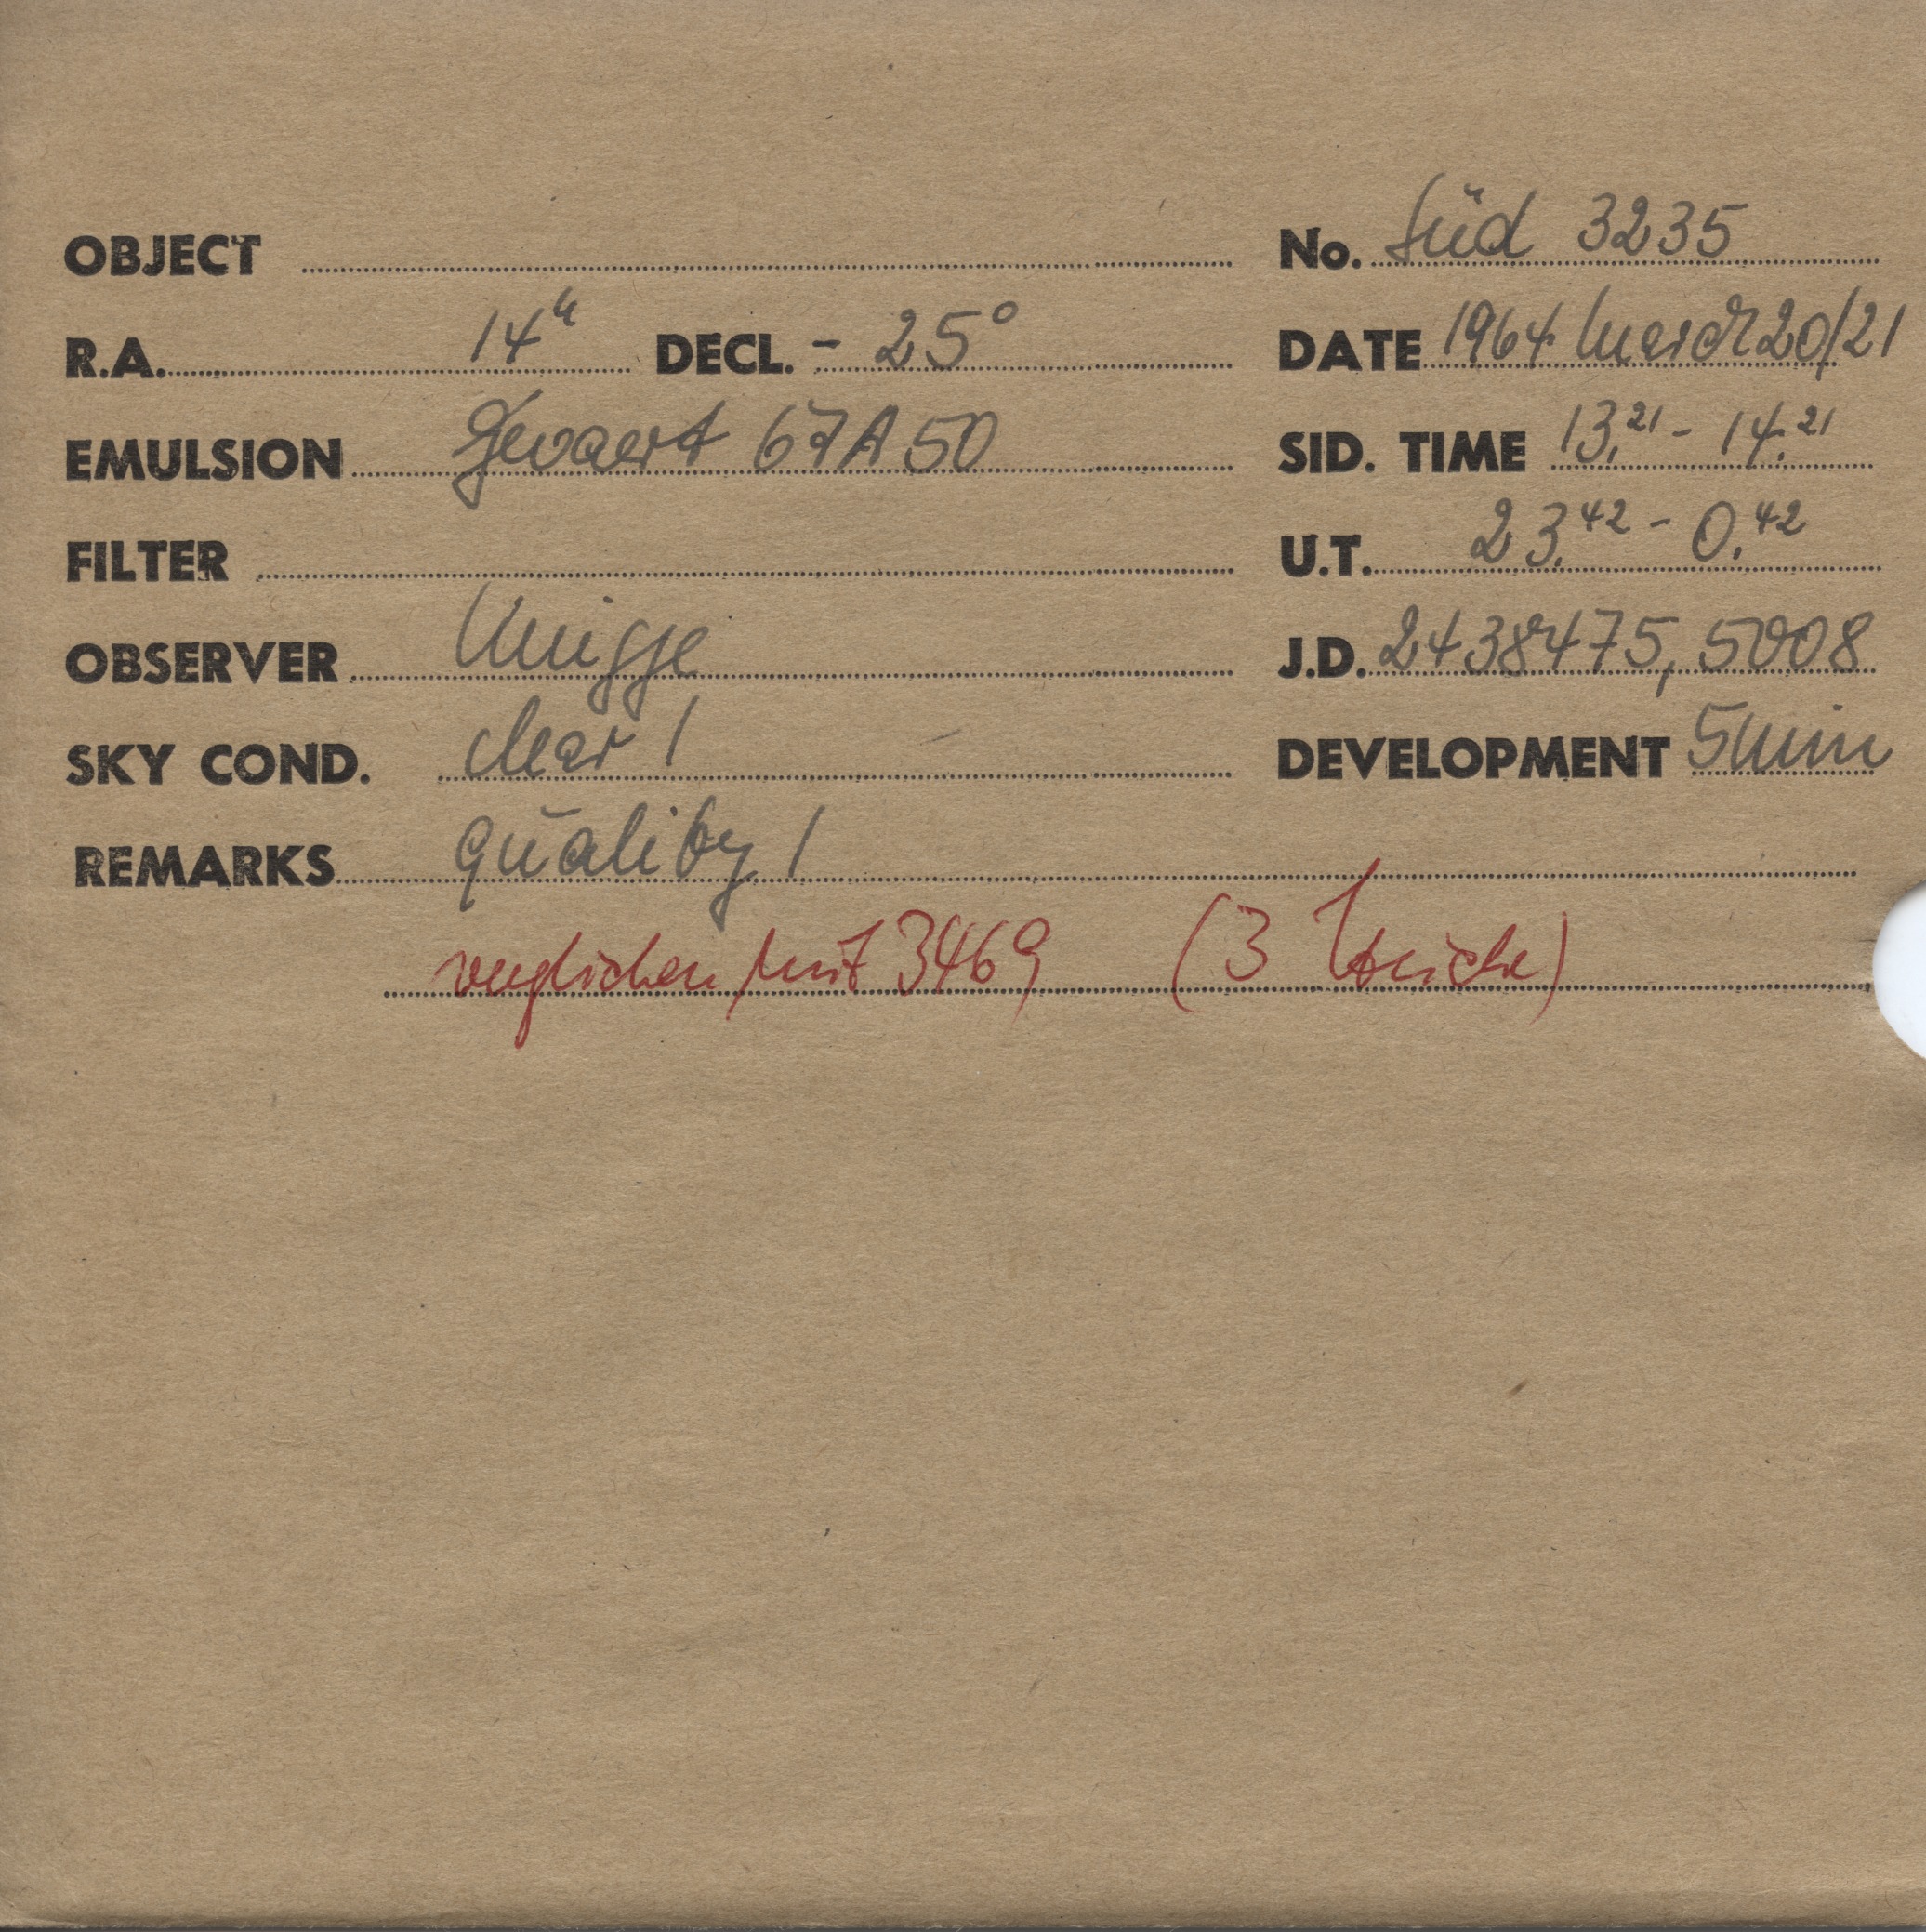 OBJECT
No. Süd 3235
R.A. 14h DECL. - 25°
DATE 1964 March 20/21
EMULSION Gevaert 67A50
SID. TIME 13.21 - 14.21
FILTER
U.T. 23.42 - 0.42
OBSERVER Knigge
J.D. 2438475,5008
SKY COND. clear 1
DEVELOPMENT 5 Min
REMARKS quality 1
verglichen mit 3469 (3 Striche)